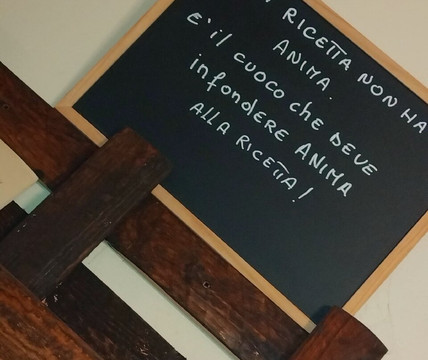 RICETTA NON HA
ANIMA.
E' il CUOCO CHE DEVE
infondERE ANIMA
ALLA RICETTA!